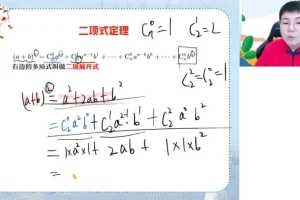 二项式定理
C_n^0 = 1 C_2^1 = 2
(a+b)^n = C_n^0 a^n + C_n^1 a^{n-1} b^1 + ⋯ + C_n^k a^{n-k} b^k + ⋯ + C_n^n b^n
右边的多项式叫做二项展开式
C_2^2 = C_2^0 = 1
(a+b)^2 = a^2 + 2ab + b^2
= C_2^0 a^2 b^0 + C_2^1 a^{2-1} b^1 + C_2^2 a^0 b^2
= 1×a^2×1 + 2ab + 1×1×b^2
=